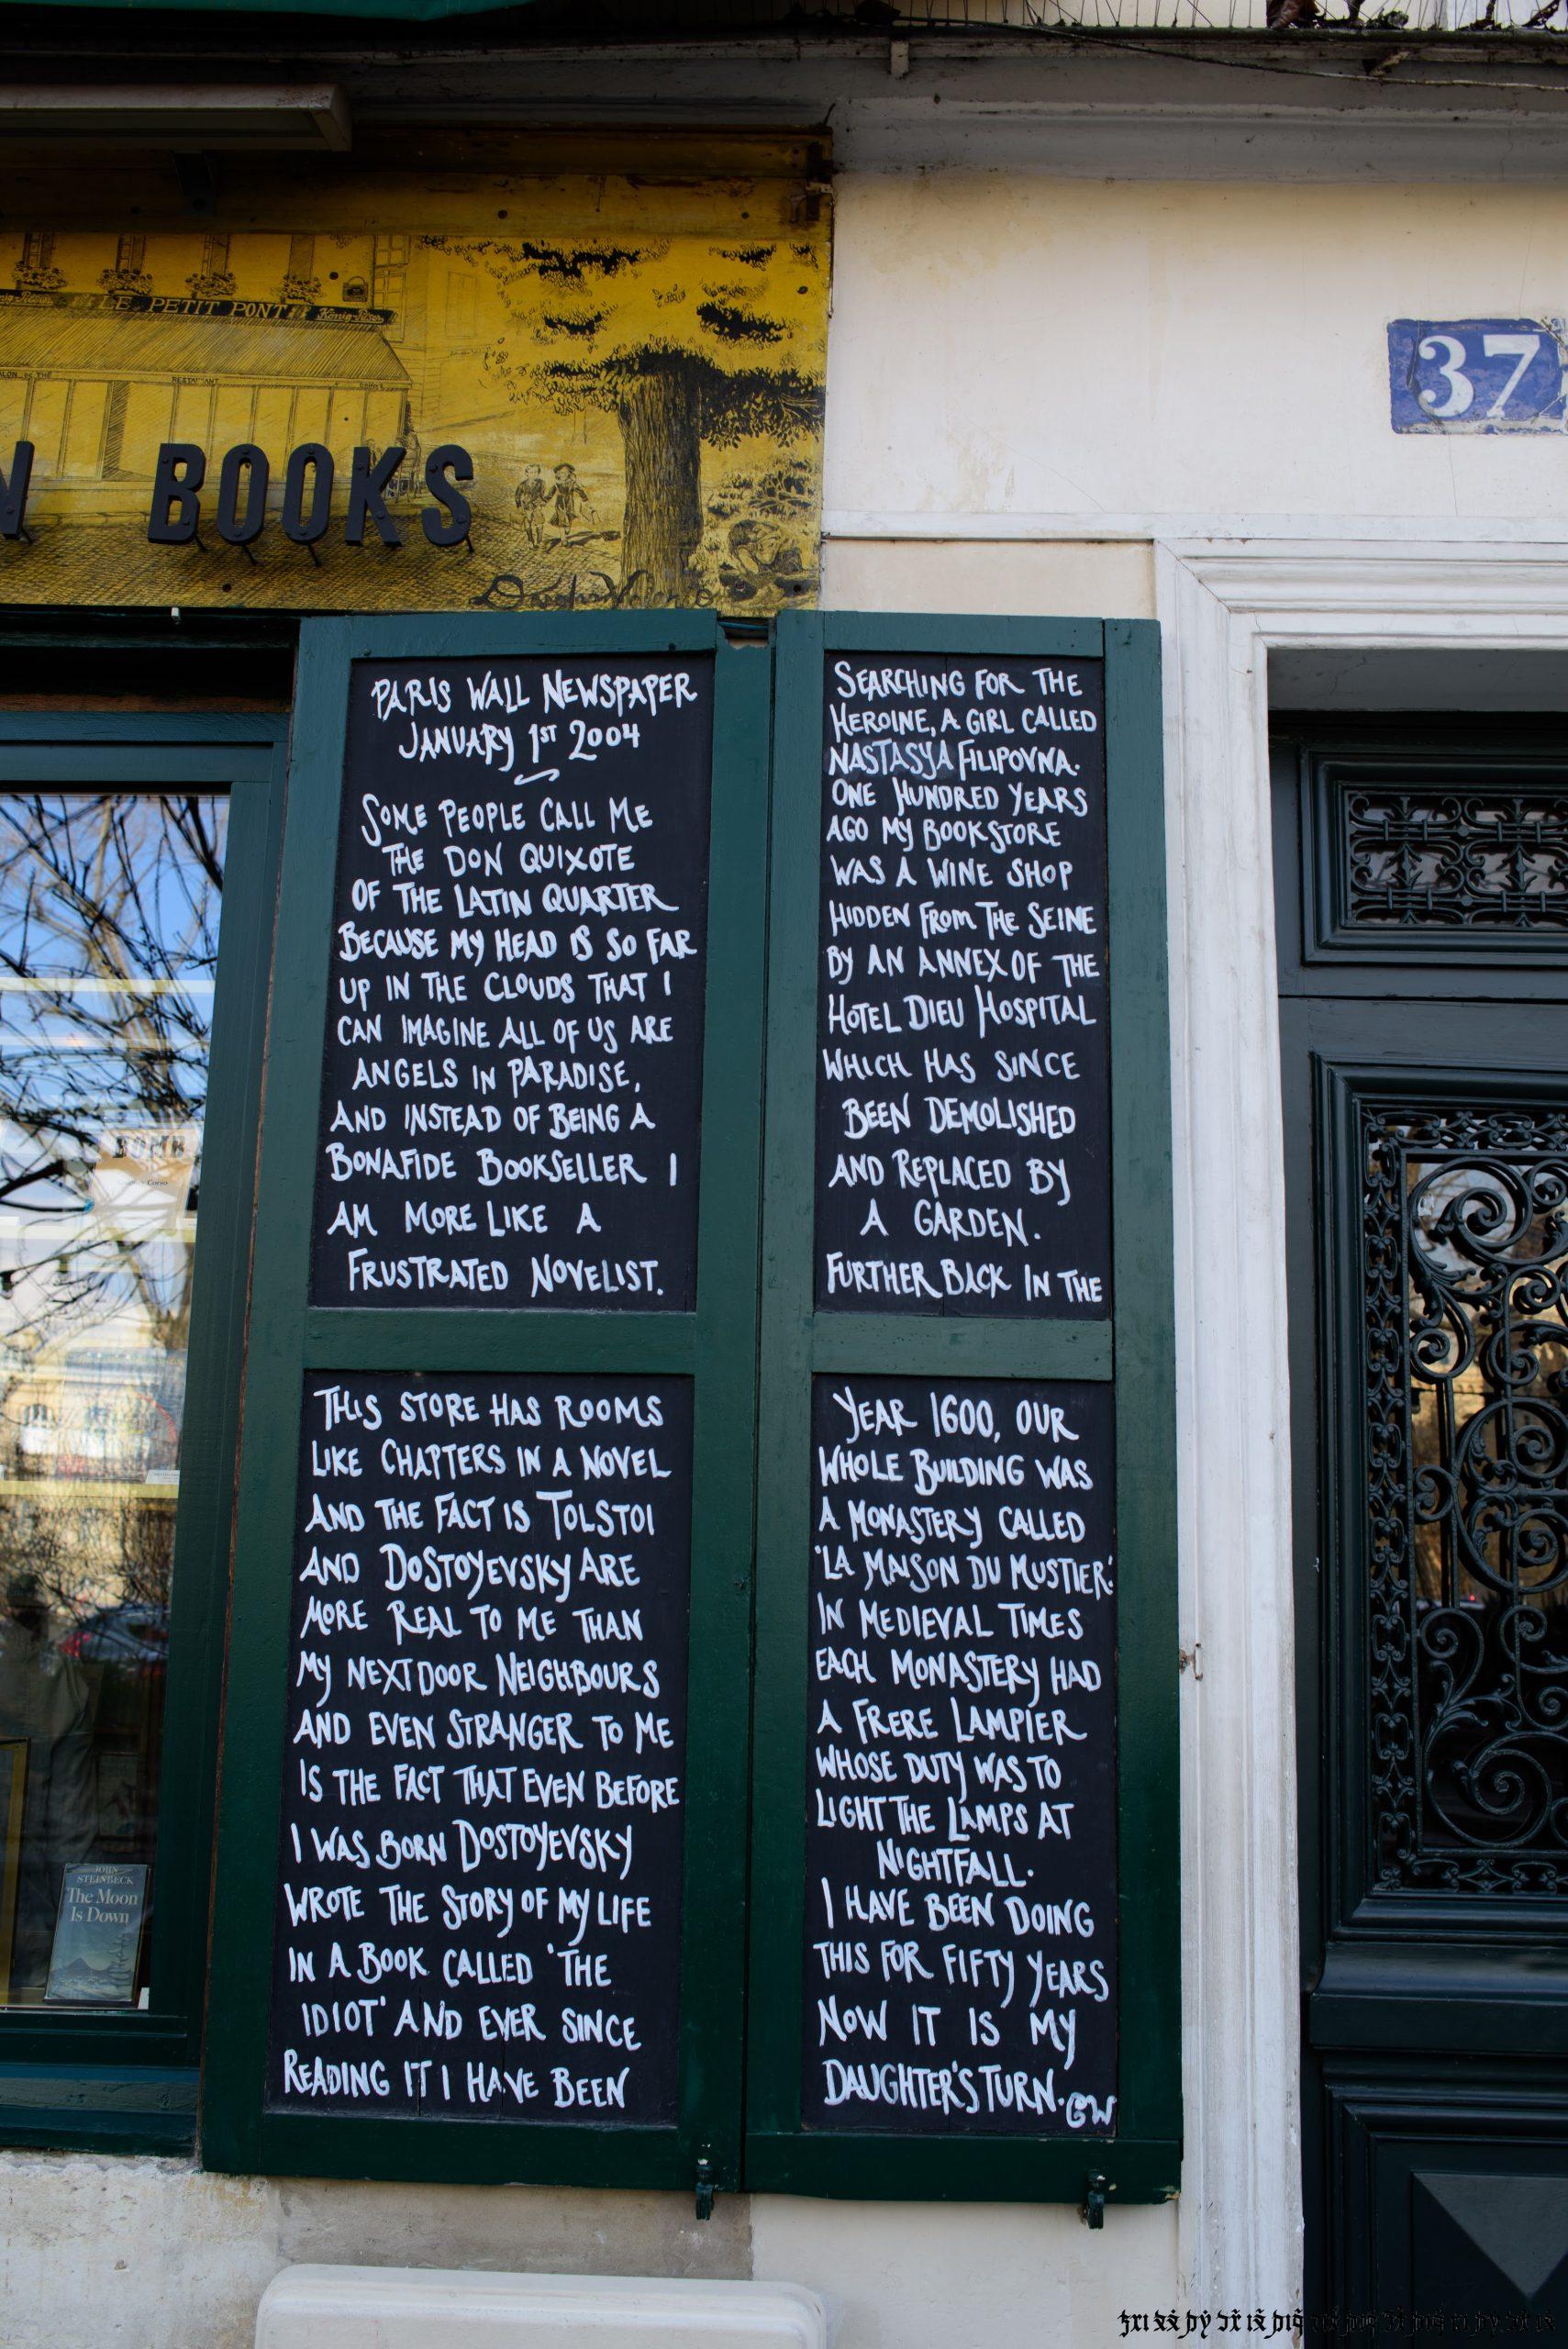 LE PETIT PONT
RESTAURANT
BOOKS
37
PARIS WALL NEWSPAPER
JANUARY 1ST 2004
SOME PEOPLE CALL ME
THE DON QUIXOTE
OF THE LATIN QUARTER
BECAUSE MY HEAD IS SO FAR
UP IN THE CLOUDS THAT I
CAN IMAGINE ALL OF US ARE
ANGELS IN PARADISE,
AND INSTEAD OF BEING A
BONAFIDE BOOKSELLER I
AM MORE LIKE A
FRUSTRATED NOVELIST.
THIS STORE HAS ROOMS
LIKE CHAPTERS IN A NOVEL
AND THE FACT IS TOLSTOI
AND DOSTOYEVSKY ARE
MORE REAL TO ME THAN
MY NEXT DOOR NEIGHBOURS
AND EVEN STRANGER TO ME
IS THE FACT THAT EVEN BEFORE
I WAS BORN DOSTOYEVSKY
WROTE THE STORY OF MY LIFE
IN A BOOK CALLED 'THE
IDIOT' AND EVER SINCE
READING IT I HAVE BEEN
SEARCHING FOR THE
HEROINE, A GIRL CALLED
NASTASYA FILIPOVNA.
ONE HUNDRED YEARS
AGO MY BOOKSTORE
WAS A WINE SHOP
HIDDEN FROM THE SEINE
BY AN ANNEX OF THE
HOTEL DIEU HOSPITAL
WHICH HAS SINCE
BEEN DEMOLISHED
AND REPLACED BY
A GARDEN.
FURTHER BACK IN THE
YEAR 1600, OUR
WHOLE BUILDING WAS
A MONASTERY CALLED
'LA MAISON DU MUSTIER.'
IN MEDIEVAL TIMES
EACH MONASTERY HAD
A FRERE LAMPIER
WHOSE DUTY WAS TO
LIGHT THE LAMPS AT
NIGHTFALL.
I HAVE BEEN DOING
THIS FOR FIFTY YEARS
NOW IT IS MY
DAUGHTER'S TURN. GW
JOHN
STEINBECK
The Moon
Is Down